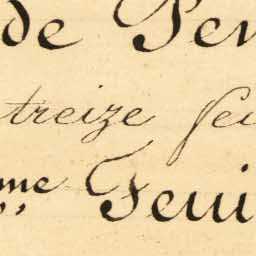 de Per
treize feu
me Feui